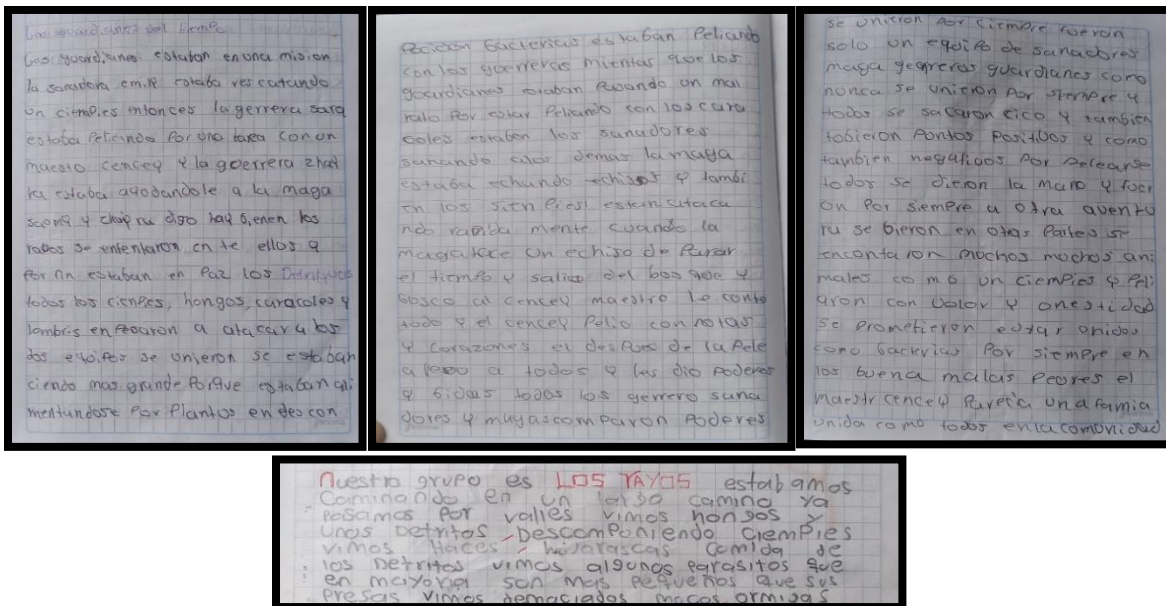 Los guardianes del tiempo
Los guardianes estaban en una mision
la sanadora emili estaba rescatando
un ciempies entonces la gerrera sara
estaba peleando por una tarea con un
maestro cencey y la guerrera zhat
ra estaba ayodandole a la maga
y digo hay bienen los
rayos se enfentaron ente ellos y
por fin estaban en paz los Detritivos
todos los cienpies, hongos, caracoles y
lombris enpesaron a atacar a los
dos equipos se unieron se estaban
ciendo mas grande porque estaban ali
mentandose por plantas en descon
posicion bacterias estaban peliando
con los guerreras mientas que los
guardianes estaban pasando un mal
rato por estar peliando con los cara
coles estaban los sanadores
sanando alos demas la maga
estaba echando echisos y tambi
en los sienpies estan
ndo rapida mente cuando la
maga hace un echiso de parar
el tiempo y salio del bosque y
bosco al cencey maestro le conto
todo y el cencey pelio con notas
y corazones el despues de la pele
a a todos y les dio poderes
y bidas todos los gerrero sana
dores y comparon poderes
se unieron por siempre fueron
solo un equipo de sanadores
maga gegreros guardianes como
nonca se unieron por siempre y
todos se sacaron cico y tambien
tobieron pontos positibos y como
tambien negatibos por pelearse
todos se dieron la mano y fuer
on por siempre a otra avento
ra se bieron en otas partes se
encontaron mochos mochos ani
males como un ciempies y peli
aron con balor y onestidad
se prometieron estar onidos
como bacterias por siempre en
los buena malas peores el
maestr cencey parecia una famia
unida como todos en la comonidad
Nuestro grupo es LOS YAYOS estabamos
Caminando en un largo camino ya
Pasamos por valles vimos hongos y
unos Detritos Descomponiendo ciempies
vimos Haces hojarascas comida de
los Detritos vimos algunos Parasitos que
en mayoria son mas pequeños que sus
Presas vimos demaciados ormigas